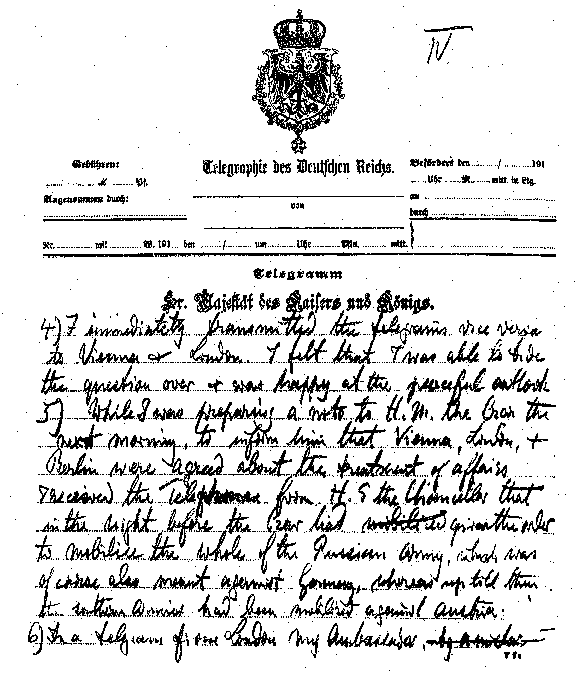 IV
Gebühren:
M Pf.
Angenommen durch:
Telegraphie des Deutschen Reichs.
von
Befördert den / 191
Uhr M. mitt. in Ltg.
an
durch
Nr. mit W. 191 den / um Uhr Min. mitt.
Telegramm
Sr. Majestät des Kaisers und Königs.
4) I immediately transmitted the telegrams vice versa
to Vienna & London. I felt that I was able to tide
the question over & was happy at the peaceful outlook.
5) While I was preparing a note to H.M. the Czar the
next morning, to inform him that Vienna, London, &
Berlin were agreed about the treatment of affairs
I received the telephones from H.E. the Chancellor that
in the night before the Czar had mobilised given the order
to mobilise the whole of the Russian army, which was
of course also meant against Germany, whereas up till then
the southern armies had been mobilised against Austria.
6) In a telegram from London my Ambassador